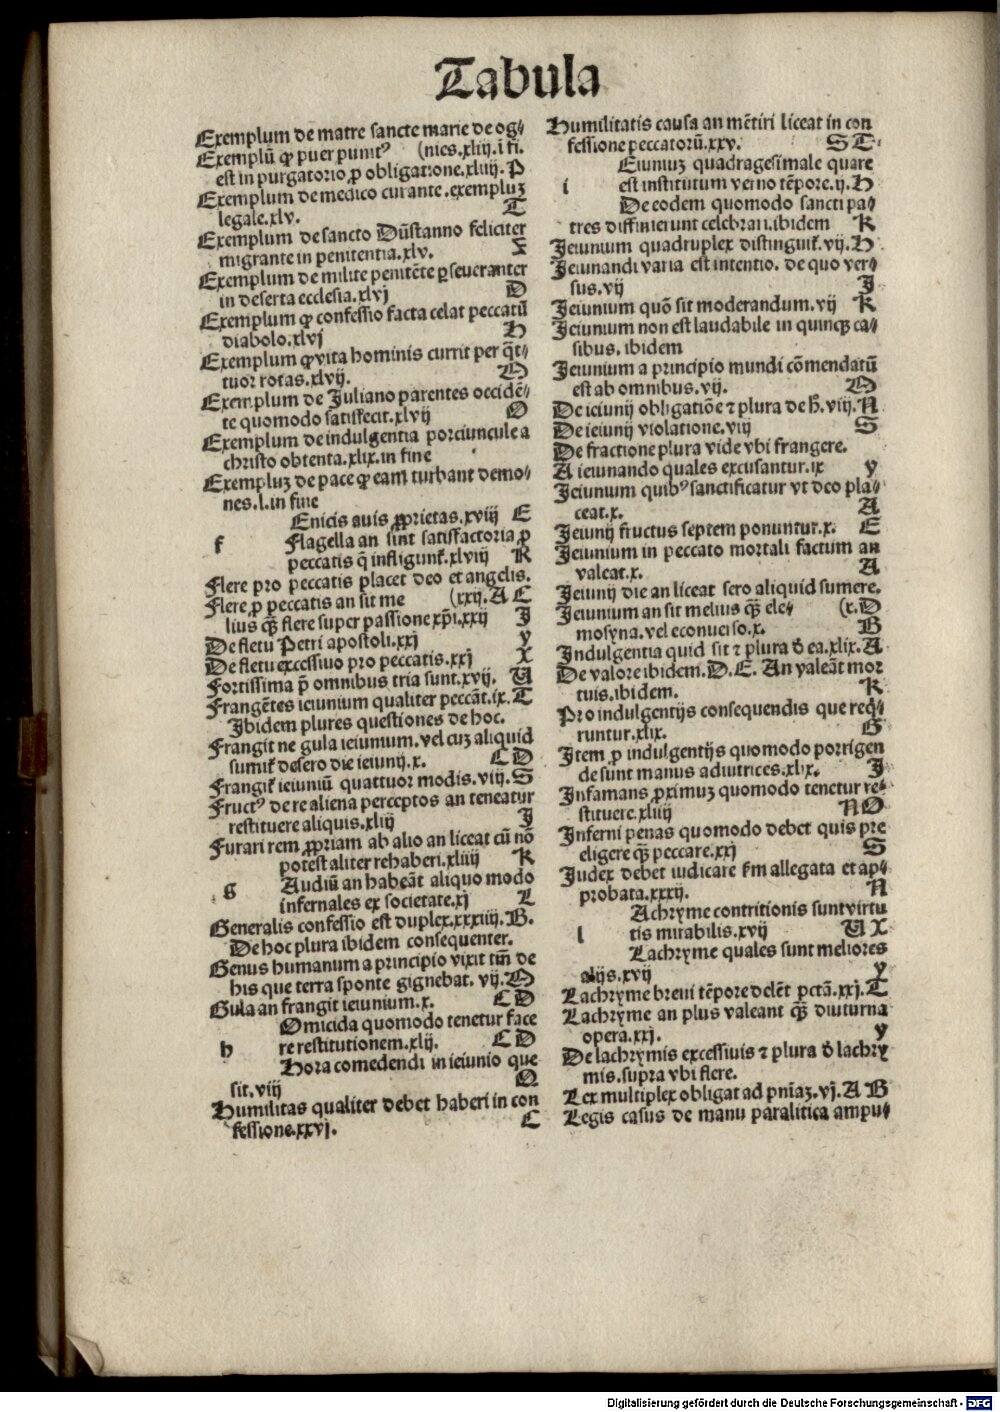 Tabula
Exemplum de matre sancte marie de og⸗
Exemplū qͥ puer punitꝰ (nies.xliij.ī fi.
est in purgatorio ꝓ obligatione.xliiij. P
Exemplum de medico curante.exempluꝫ
legale.xlv. T
Exemplum de sancto Dūstanno feliciter
migrante in penitentia.xlv. X
Exemplum de milite penitēte ꝑseueranter
in deserta ecclesia.xlvj D
Exemplum ꝙ confessio facta celat peccatū
diabolo.xlvj H
Exemplum ꝙ vita hominis currit per q̄t⸗
tuor rotas.xlvij. M
Exemplum de Juliano parentes occidē⸗
te quomodo satisfecit.xlvij O
Exemplum de indulgentia porciuncule a
christo obtenta.xlix.in fine
Exempluꝫ de pace ꝙ eam turbant demo⸗
nes.l.in fine
Enicis auis ꝓprietas.xviij E
f Flagella an sint satisfactoria ꝓ
peccatis q̄ infligunt̄.xlviij K
Flere pro peccatis placet deo et angelis.
Flere ꝓ peccatis an sit me (xxij.A C
lius q̄ꝫ flere super passione xp̄i.xxij J
De fletu Petri apostoli.xxj y
De fletu excessiuo pro peccatis.xxj X
Fortissima p̄ omnibus tria sunt.xvij. U
Frangētes ieiunium qualiter peccāt.ix. T
Ibidem plures questiones de hoc.
Frangit ne gula ieiunium.vel cuꝫ aliquid
sumit̄ de sero die ieiunij.x. C D
Frangit̄ ieiuniū quattuor modis.viij. S
Fructꝰ de re aliena perceptos an teneatur
restituere aliquis.xliij J
Furari rem ꝓpriam ab alio an liceat cū nō
potest aliter rehaberi.xliiij K
g Audiū an habeāt aliquo modo
infernales ex societate.xj L
Generalis confessio est duplex.xxxiiij. B.
De hoc plura ibidem consequenter.
Genus humanum a principio vixit tm̄ de
his que terra sponte gignebat. vij. M
Gula an frangit ieiunium.x. C D
Omicida quomodo tenetur face
h re restitutionem.xlij. C D
Hora comedendi in ieiunio que
sit.viij Q
Humilitas qualiter debet haberi in con
fessione.xxvj. C
Humilitatis causa an mētiri liceat in con
fessione peccatorū.xxv. S T
Eiuniuꝫ quadragesimale quare
i est institutum verno tēpore.ij. H
De eodem quomodo sancti pa⸗
tres diffinierunt celebrari.ibidem K
Jeiunium quadruplex distinguit̄.vij. H
Jeiunandi varia est intentio. de quo ver⸗
sus.vij J
Jeiunium quō sit moderandum.vij K
Jeiunium non est laudabile in quinqꝫ ca⸗
sibus. ibidem
Jeiunium a principio mundi cōmendatū
est ab omnibus.vij. M
De ieiunij obligatiōe ⁊ plura de h̄. viij. N
De ieiunij violatione.viij S
De fractione plura vide vbi frangere.
A ieiunando quales excusantur.ix y
Jeiunium quibꝰ sanctificatur vt deo pla⸗
ceat.x. A
Jeiunij fructus septem ponuntur.x. E
Jeiunium in peccato mortali factum an
valeat.x. A
Jeiunij die an liceat sero aliquid sumere.
Jeiunium an sit melius q̄ꝫ ele⸗ (x. D
mosyna.vel econuerso.x. B
Indulgentia quid sit ⁊ plura ð ea.xlix. A
De valore ibidem. D. E. An valeāt mor
tuis.ibidem. K
Pro indulgentijs consequendis que req̄⸗
runtur.xlix. G
Item ꝓ indulgentijs quomodo porrigen
de sunt manus adiutrices.xlix. J
Infamans ꝓximuꝫ quomodo tenetur re⸗
stituere.xliiij N O
Inferni penas quomodo debet quis pre
eligere q̄ꝫ peccare.xxj S
Iudex debet iudicare s̄m allegata et ap⸗
probata.xxxij. N
Achryme contritionis sunt virtu
l tis mirabilis.xvij U X
Lachryme quales sunt meliores
alijs.xvij y
Lachryme breui tēpore delēt pctā.xxj. T
Lachryme an plus valeant q̄ꝫ diuturna
opera.xxj. y
De lachrymis excessiuis ⁊ plura ð lachry
mis.supra vbi flere.
Lex multiplex obligat ad pn̄iaꝫ.vj. A B
Legis casus de manu paralitica ampu⸗
Digitalisierung gefördert durch die Deutsche Forschungsgemeinschaft - DFG